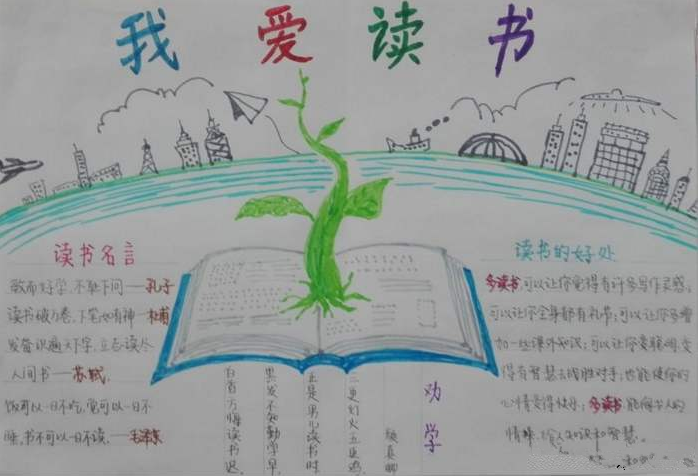 我爱读书
读书名言
敏而好学,不耻下问——孔子
读书破万卷,下笔如有神 杜甫
发奋识遍天下字,立志读尽
人间书——苏轼.
饭可以一日不吃,觉可以一日不
睡,书不可以一日不读.——毛泽东
劝学
颜真卿
三更灯火五更鸡,
正是男儿读书时
黑发不知勤学早,
白首方悔读书迟.
读书的好处
多读书,可以让你觉得有许多写作灵感;
可以让你全身都有礼节;可以让你多增
加一些课外知识;可以让你变聪明,变
得有智慧去战胜对手;也能使你的
心情变得快乐;多读书,能陶冶人的
情操,给人知识和智慧.